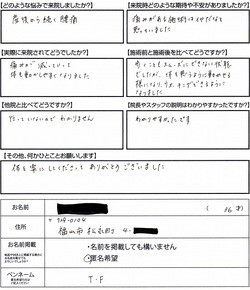 【どのような悩みで来院しましたか？】
産後から続く腰痛
【来院時どのような期待や不安がありましたか？】
痛みがある施術はイヤだなと
思っていました
【実際に来院されてどうでしたか？】
痛みが減っていって
体を動かしやすくなりました
【施術前と施術後を比べてどうですか？】
歩くこともスムーズにできない状態
でしたが、体も思うように動かせる
様になり、ウォーキングができるように
なりました
【他院と比べてどうですか？】
行っていないのでわかりません
【院長やスタッフの説明はわかりやすかったですか？】
わかりやすかったです
【その他、何かひとことお願いします】
体を楽にしてくださって ありがとうございました
お名前
ご住所
〒729-0104
福山市松永町 4-
掲載可否
・名前を掲載しても構いません
・匿名希望
ペンネーム
T・F